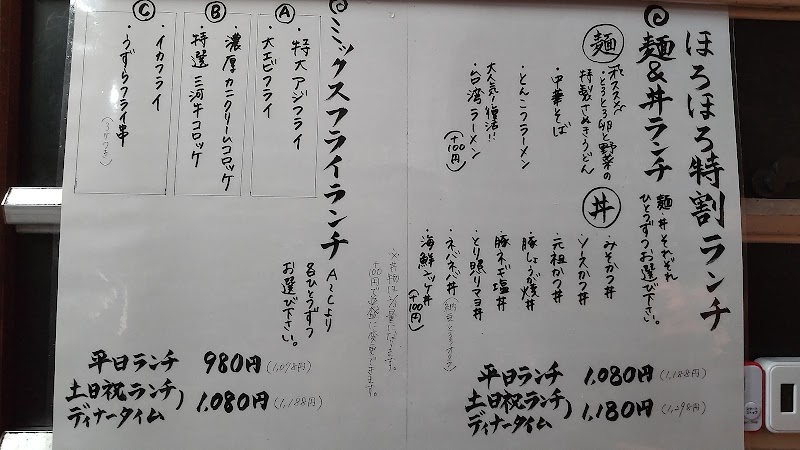 ほろほろ特割ランチ
麺&丼ランチ
麺・丼それぞれ
ひとつずつお選び下さい。
麺
・とろとろ卵と野菜の
特製さぬきうどん
・中華そば
・とんこつラーメン
大人気!復活!!
・台湾ラーメン
(+100円)
丼
・みそかつ丼
・ソースかつ丼
・元祖かつ丼
・豚しょうが焼丼
・豚ネギ塩丼
・とり照りマヨ丼
・ネバネバ丼
・海鮮ユッケ丼
(+100円)
平日ランチ 1,080円(1,188円)
土日祝ランチ
ディナータイム 1,180円(1,298円)
ミックスフライランチ
A~Cより
各ひとつずつ
お選び下さい。
A
・特大アジフライ
・大エビフライ
B
・濃厚カニクリームコロッケ
・特選三河牛コロッケ
C
・イカフライ
・うずらフライ串
平日ランチ 980円(1,078円)
土日祝ランチ
ディナータイム 1,080円(1,188円)